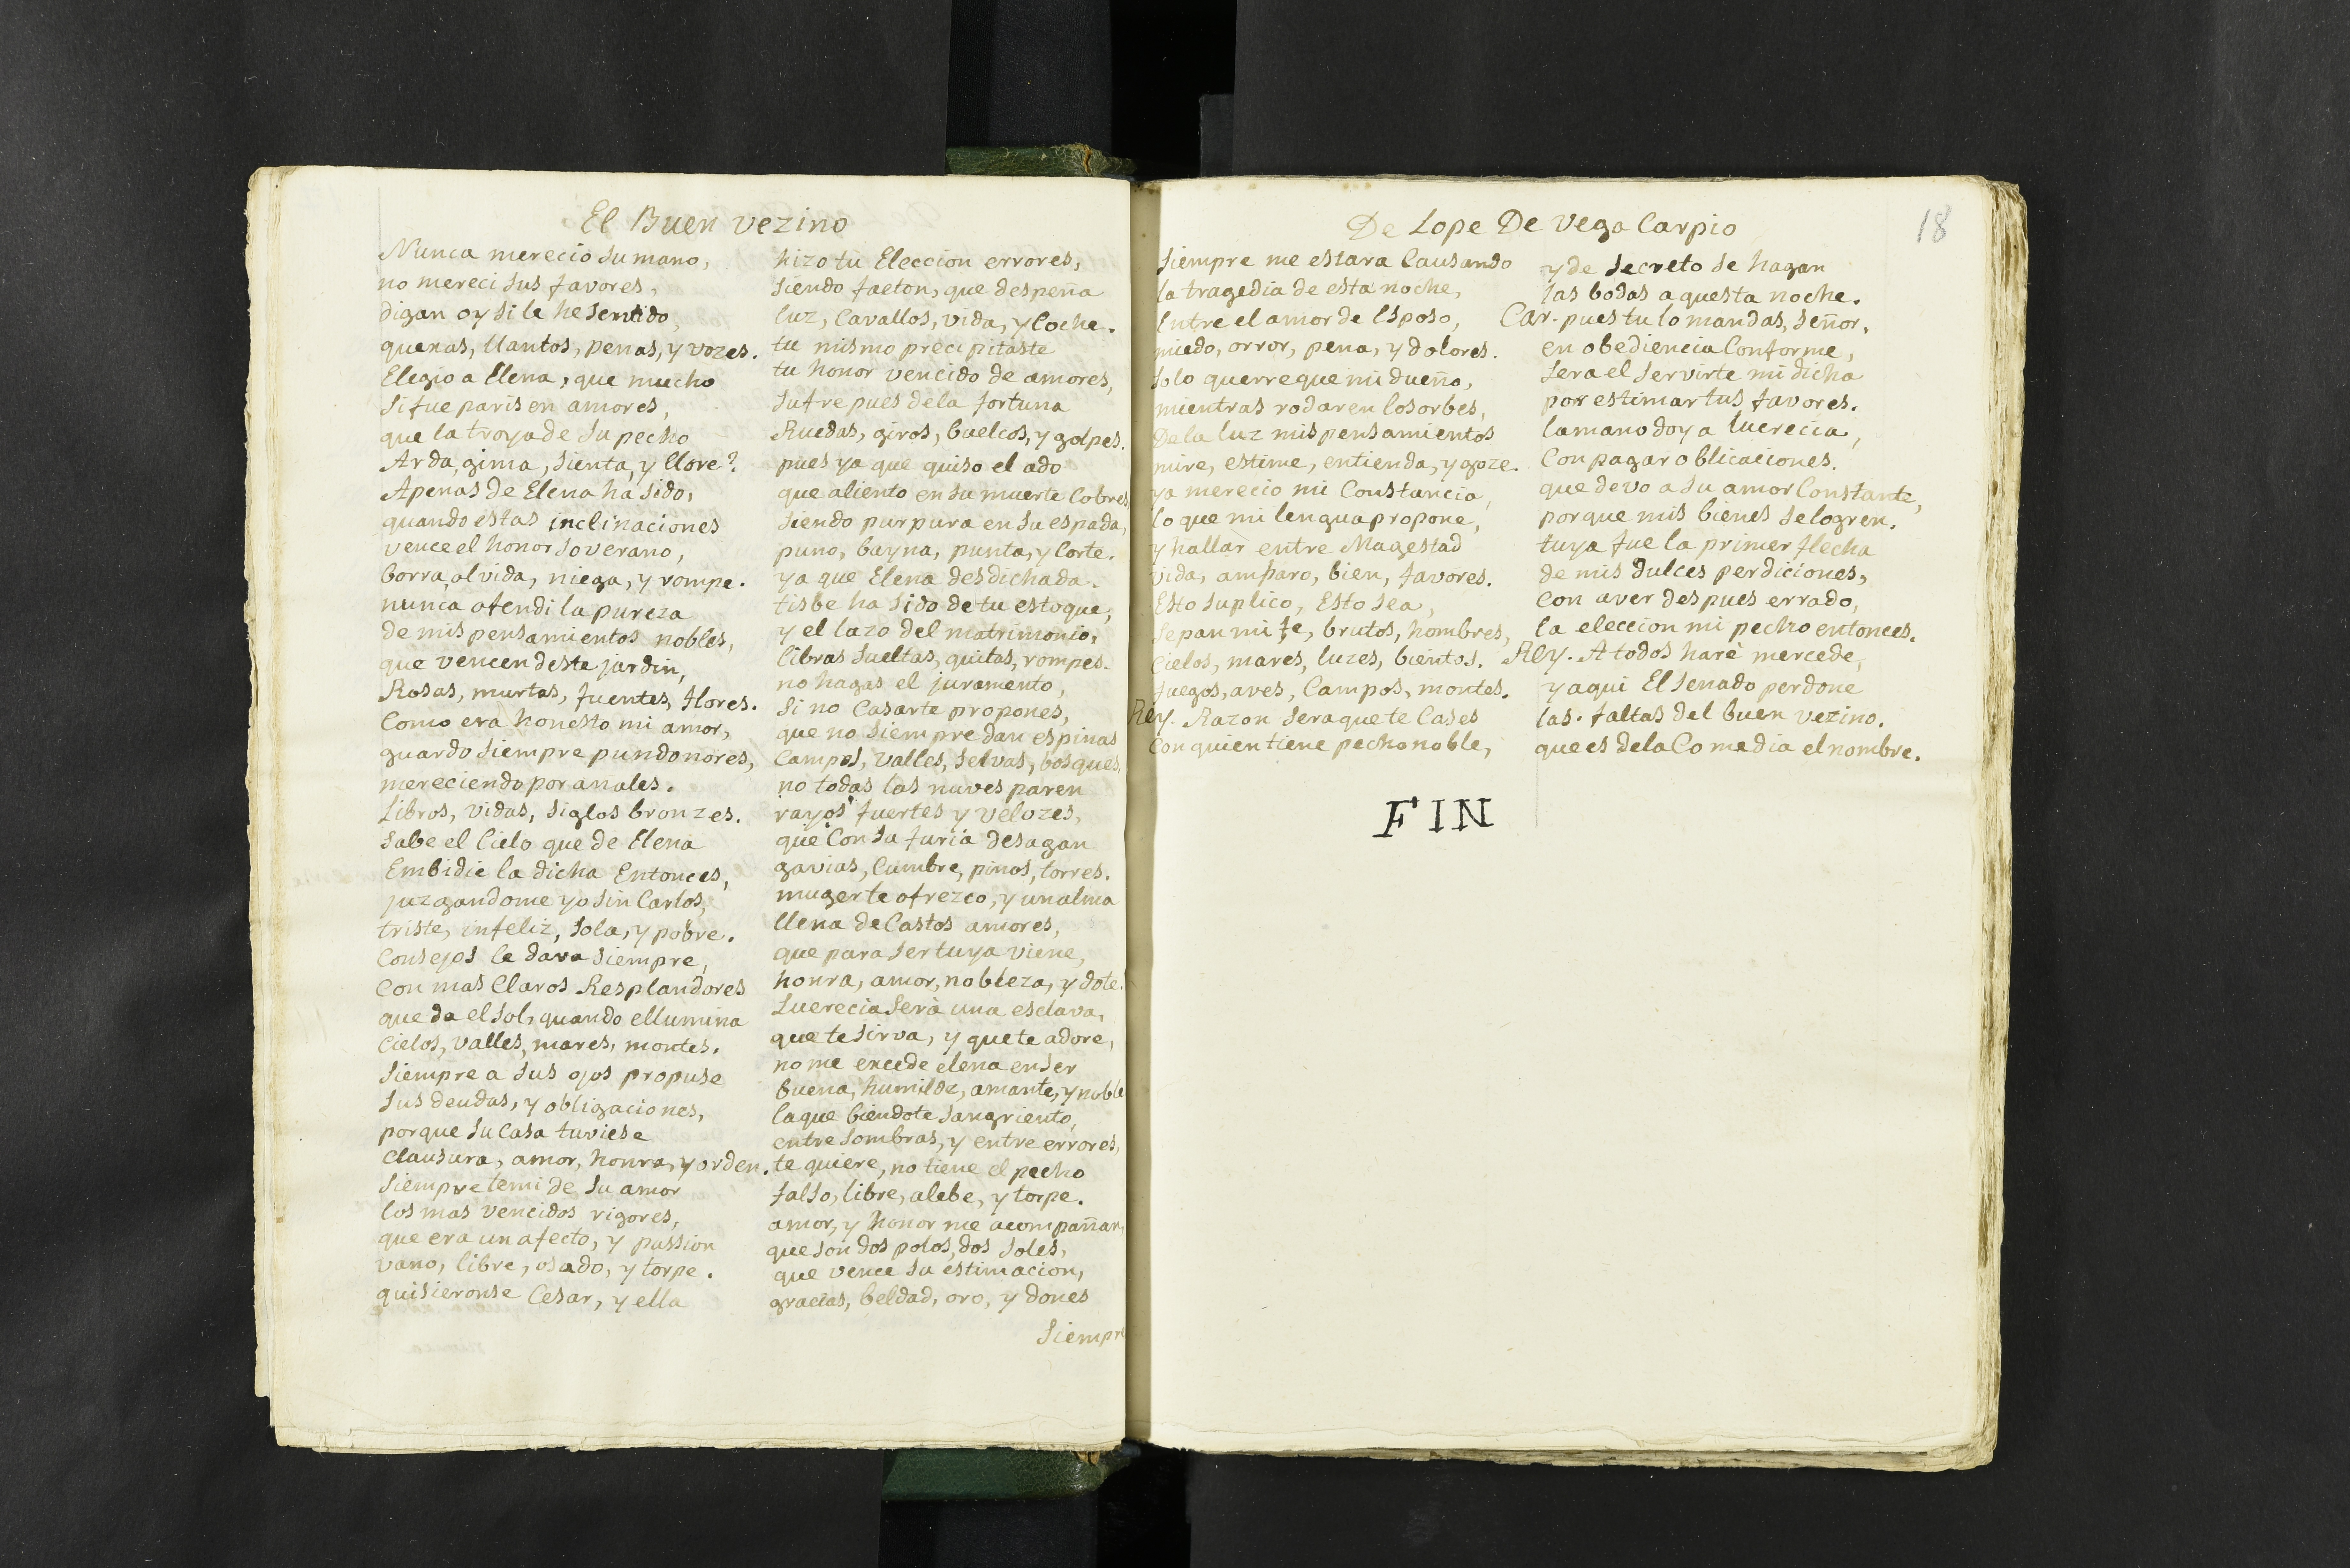 El Buen vezino
Nunca merecio su mano,
no mereci sus favores,
digan oy si le he sentido,
quexas, llantos, penas, y vozes.
Elegio a Elena, que mucho
si fue paris en amores,
que la troya de su pecho
Arda, gima, sienta, y llore?
Apenas de Elena ha sido,
quando estas inclinaciones
vence el honor soverano,
borra, olvida, niega, y rompe.
nunca ofendi la pureza
de mis pensamientos nobles,
que vencen deste jardin,
Rosas, murtas, fuentes, flores.
Como era honesto mi amor,
guardo siempre pundonores,
mereciendo por anales.
Libros, vidas, siglos bronzes.
Sabe el Cielo que de Elena
Embidie la dicha Entonces,
juzgandome yo sin Carlos,
triste, infeliz, sola, y pobre.
Consejos le dava siempre,
Con mas Claros Resplandores
que da el sol, quando ellumina
Cielos, valles, mares, montes.
Siempre a sus ojos propuse
sus deudas, y obligaciones,
porque su Casa tuviese
Clausura, amor, honra, y orden.
Siempre temi de su amor
los mas vencidos rigores,
que era un afecto, y passion
vano, libre, osado, y torpe.
quisieronse Cesar, y ella
hizo tu Eleccion errores,
siendo faeton, que despeña
luz, Cavallos, vida, y Coche.
tu mismo precipitaste
tu honor vencido de amores,
sufre pues dela fortuna
Ruedas, giros, buelcos, y golpes.
pues ya que quiso el ado
que aliento en su muerte Cobres
siendo purpura en su espada,
puno, bayna, punta, y Corte.
ya que Elena desdichada.
tisbe ha sido de tu estoque,
y el lazo del matrimonio,
libras sueltas, quitas, rompes.
no hagas el juramento,
si no Casarte propones,
que no siempre dan espinas
Campos, valles, selvas, bosques,
no todas las nuves paren
rayos fuertes y velozes,
que Con sa furia desagan
gavias, Cumbre, pinos, torres.
muger te ofrezco, y un alma
llena de Castos amores,
que para ser tuya viene,
honra, amor, nobleza, y dote.
Lucrecia serà una esclava,
que te sirva, y que te adore,
no me excede elena en ser
buena, humilde, amante, y noble
la que biendote sangriento,
entre sombras, y entre errores,
te quiere, no tiene el pecho
falso, libre, alebe, y torpe.
amor, y honor me acompañan,
que son dos polos, dos soles,
que vence su estimacion,
gracias, beldad, oro, y dones
Siempre
De Lope De Vega Carpio
18
siempre me estara Causando
la tragedia de esta noche,
Entre el amor de Esposo,
miedo, orror, pena, y dolores.
solo querre que mi dueño,
mientras rodaren los orbes,
De la luz mis pensamientos
mire, estime, entienda, y goze.
ya merecio mi Constancia,
lo que mi lengua propone,
y hallar entre Magestad
vida, amparo, bien, favores.
Esto suplico, Esto sea,
sepan mi fe, brutos, hombres,
Cielos, mares, luzes, bientos.
fuegos, aves, Campos, montes.
Rey. Razon sera que te Cases
Con quien tiene pecho noble,
y de secreto se hagan
las bodas aquesta noche.
Car. pues tu lo mandas, señor,
en obediencia Conforme,
sera el servirte mi dicha
por estimar tus favores.
la mano doy a lucrecia,
Con pagar oblicaciones.
que devo a su amor Constante,
porque mis bienes se logren.
tuya fue la primer flecha
de mis dulces perdiciones,
Con aver despues errado,
la eleccion mi pecho entonces.
Rey. A todos harè mercede,
y aqui El senado perdone
las faltas del buen vezino.
que es dela Comedia el nombre.
FIN